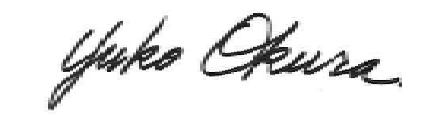 Yuko Okura